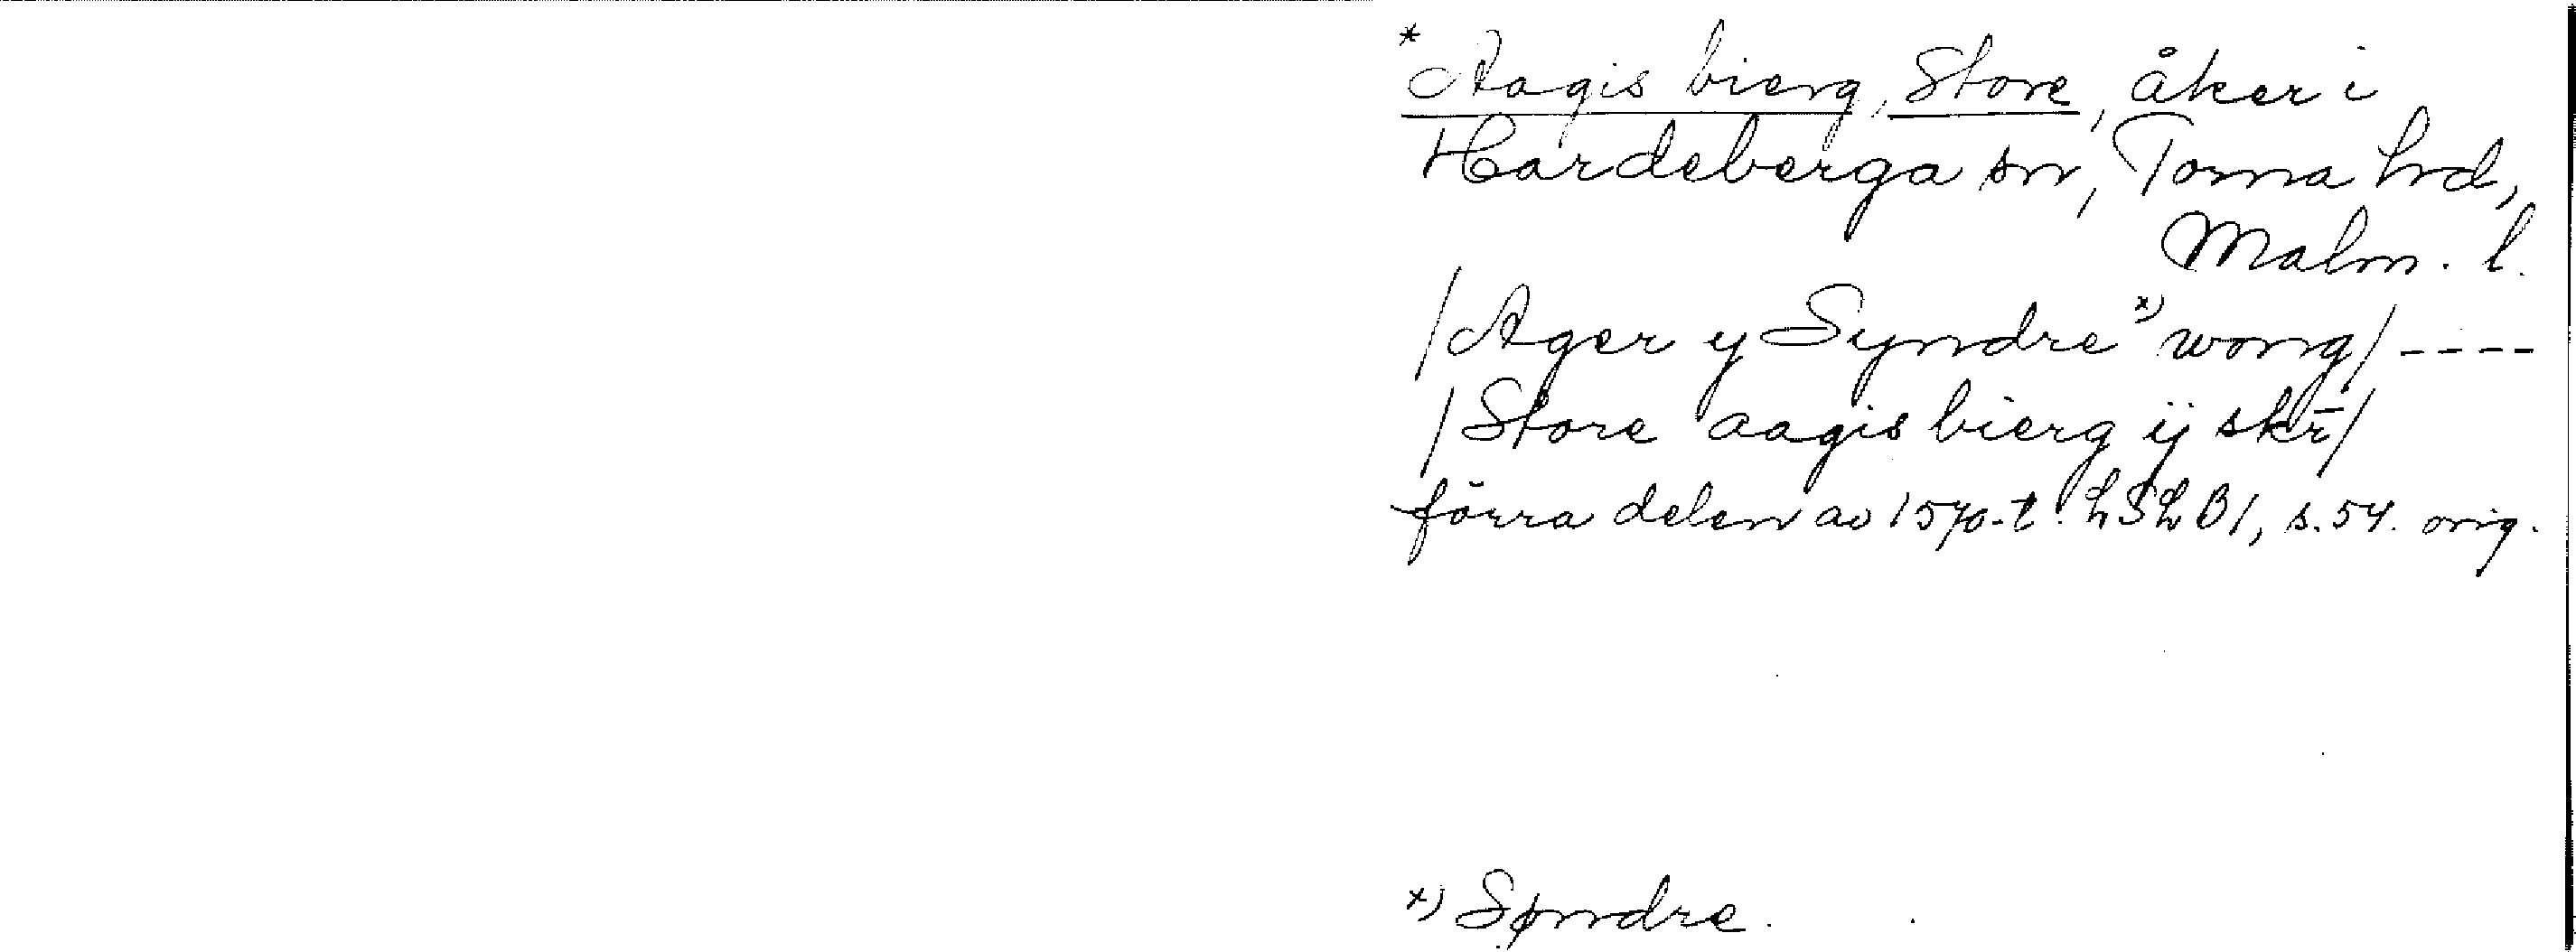 * Aagis bierg, Store, åker i
Hardeberga sn, Torna hrd,
Malm. l.
/Ager y Syndre x) wong/ ----
/Store aagis bierg ij skr̄/
förra delen av 1570-t. LSLB1, s. 54. orig.
x) Søndre.